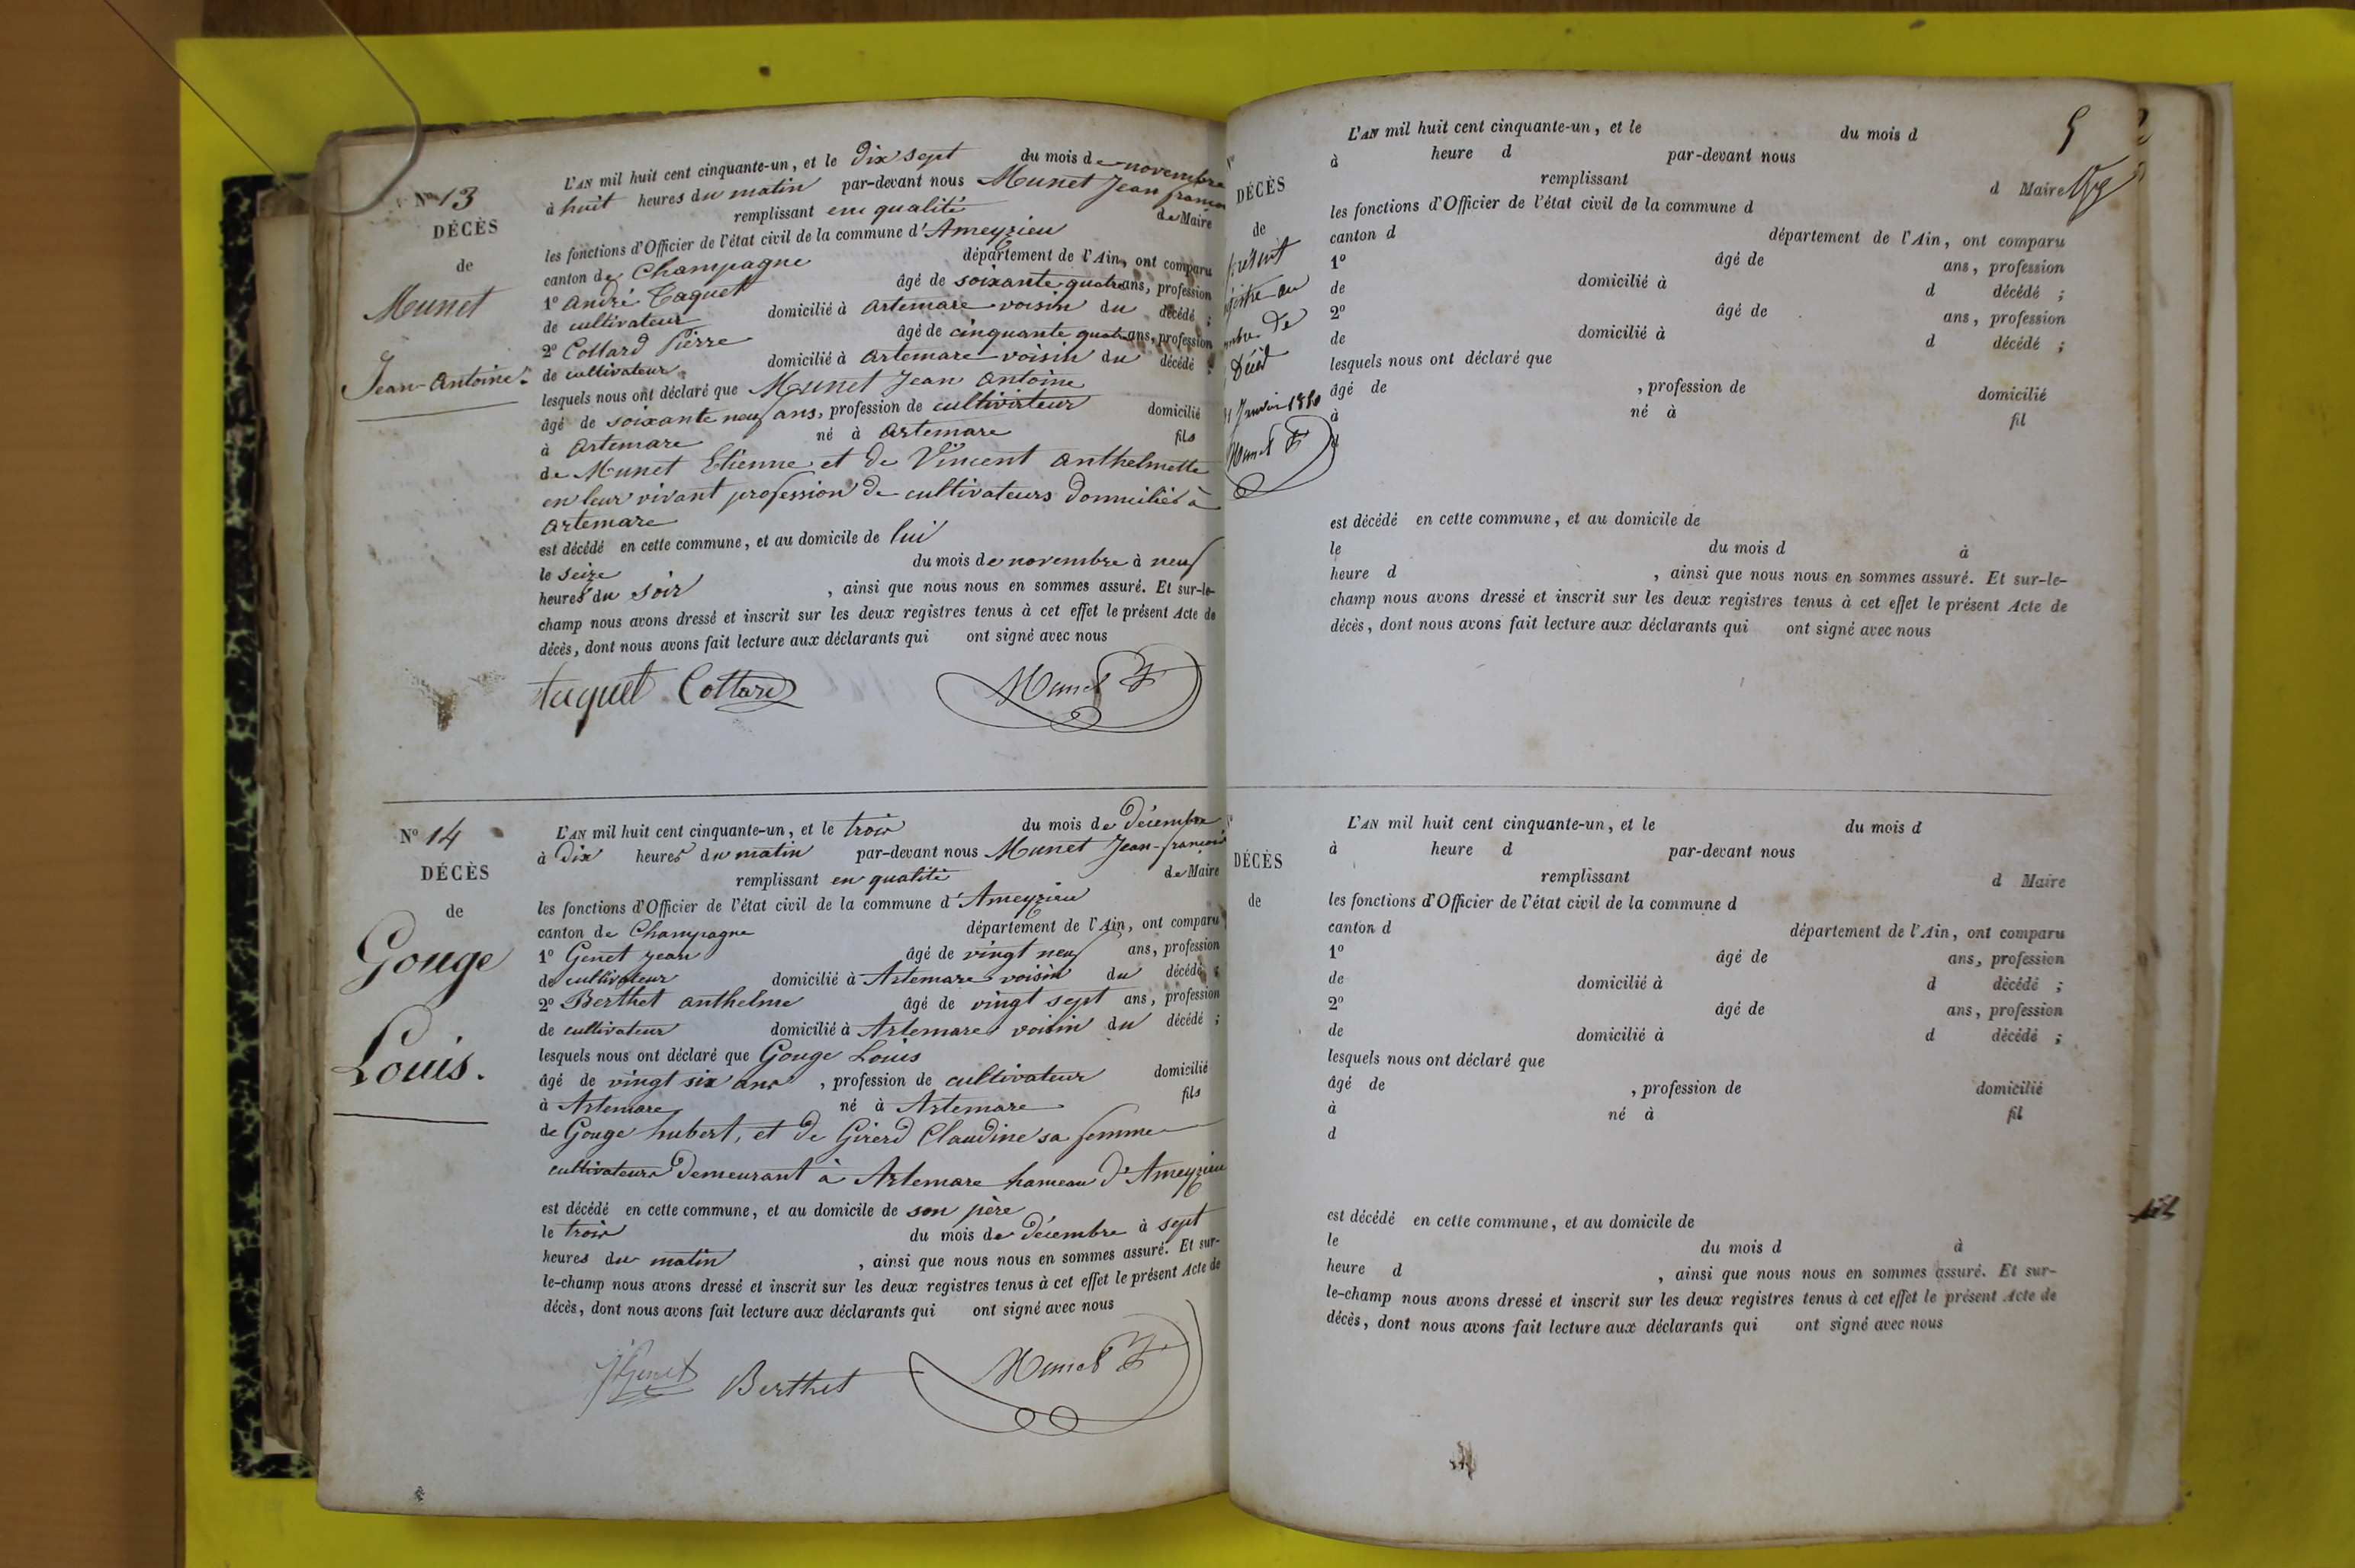 N° 13
DÉCÈS
de
Munet
Jean-Antoine.
L'AN mil huit cent cinquante-un, et le dix sept du mois de novembre
à huit heures du matin par-devant nous Munet Jean françois
remplissant en qualité de Maire
les fonctions d'Officier de l'état civil de la commune d'Ameyzieu
canton de Champagne département de l'Ain, ont comparu
1° André Taquet âgé de soixante quatre ans, profession
de cultivateur domicilié à Artemare voisin du décédé ;
2° Collard Pierre âgé de cinquante quatre ans, profession
de cultivateur domicilié à Artemare voisin du décédé ;
lesquels nous ont déclaré que Munet Jean Antoine
âgé de soixante neuf ans, profession de cultivateur domicilié
à Artemare né à Artemare fils
de Munet Etienne et de Vincent Anthelmette
en leur vivant profession de cultivateurs domiciliés à
Artemare
est décédé en cette commune, et au domicile de lui
le seize du mois de novembre à neuf
heures du soir , ainsi que nous nous en sommes assuré. Et sur-le-
champ nous avons dressé et inscrit sur les deux registres tenus à cet effet le présent Acte de
décès, dont nous avons fait lecture aux déclarants qui ont signé avec nous
taquet Collard Munet
N° 14
DÉCÈS
de
Gouge
Louis.
L'AN mil huit cent cinquante-un, et le trois du mois de décembre
à dix heures du matin par-devant nous Munet Jean-françois
remplissant en qualité de Maire
les fonctions d'Officier de l'état civil de la commune d'Ameyzieu
canton de Champagne département de l'Ain, ont comparu
1° Genet Jean âgé de vingt neuf ans, profession
de cultivateur domicilié à Artemare voisin du décédé ;
2° Berthet anthelme âgé de vingt sept ans, profession
de cultivateur domicilié à Artemare voisin du décédé ;
lesquels nous ont déclaré que Gouge Louis
âgé de vingt six ans , profession de cultivateur domicilié
à Artemare né à Artemare fils
de Gouge hubert, et de Girerd Claudine sa femme
cultivateurs demeurant à Artemare hameau d'Ameyzieu
est décédé en cette commune, et au domicile de son père
le trois du mois de décembre à sept
heures du matin , ainsi que nous nous en sommes assuré. Et sur-
le-champ nous avons dressé et inscrit sur les deux registres tenus à cet effet le présent Acte de
décès, dont nous avons fait lecture aux déclarants qui ont signé avec nous
Genet Berthet Munet
5
DÉCÈS
de
présent
Janvier 18
Munet
L'AN mil huit cent cinquante-un, et le du mois d
à heure d par-devant nous
remplissant d Maire
les fonctions d'Officier de l'état civil de la commune d
canton d département de l'Ain, ont comparu
1° âgé de ans, profession
de domicilié à d décédé ;
2° âgé de ans, profession
de domicilié à d décédé ;
lesquels nous ont déclaré que
âgé de , profession de domicilié
à né à fil
d
est décédé en cette commune, et au domicile de
le du mois d à
heure d , ainsi que nous nous en sommes assuré. Et sur-le-
champ nous avons dressé et inscrit sur les deux registres tenus à cet effet le présent Acte de
décès, dont nous avons fait lecture aux déclarants qui ont signé avec nous
DÉCÈS
de
L'AN mil huit cent cinquante-un, et le du mois d
à heure d par-devant nous
remplissant d Maire
les fonctions d'Officier de l'état civil de la commune d
canton d département de l'Ain, ont comparu
1° âgé de ans, profession
de domicilié à d décédé ;
2° âgé de ans, profession
de domicilié à d décédé ;
lesquels nous ont déclaré que
âgé de , profession de domicilié
à né à fil
d
est décédé en cette commune, et au domicile de
le du mois d à
heure d , ainsi que nous nous en sommes assuré. Et sur-
le-champ nous avons dressé et inscrit sur les deux registres tenus à cet effet le présent Acte de
décès, dont nous avons fait lecture aux déclarants qui ont signé avec nous